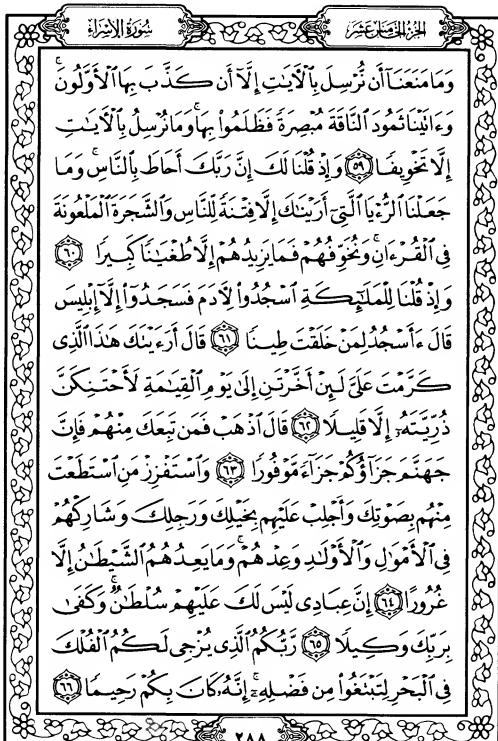 الجزء الخامس عشر
سورة الإسراء
وَمَا مَنَعَنَآ أَن نُّرْسِلَ بِٱلْـَٔايَٰتِ إِلَّآ أَن كَذَّبَ بِهَا ٱلْأَوَّلُونَ ۚ
وَءَاتَيْنَا ثَمُودَ ٱلنَّاقَةَ مُبْصِرَةً فَظَلَمُوا۟ بِهَا ۚ وَمَا نُرْسِلُ بِٱلْـَٔايَٰتِ
إِلَّا تَخْوِيفًا ٥٩ وَإِذْ قُلْنَا لَكَ إِنَّ رَبَّكَ أَحَاطَ بِٱلنَّاسِ ۚ وَمَا
جَعَلْنَا ٱلرُّءْيَا ٱلَّتِىٓ أَرَيْنَٰكَ إِلَّا فِتْنَةً لِّلنَّاسِ وَٱلشَّجَرَةَ ٱلْمَلْعُونَةَ
فِى ٱلْقُرْءَانِ ۚ وَنُخَوِّفُهُمْ فَمَا يَزِيدُهُمْ إِلَّا طُغْيَٰنًا كَبِيرًا ٦٠
وَإِذْ قُلْنَا لِلْمَلَٰٓئِكَةِ ٱسْجُدُوا۟ لِـَٔادَمَ فَسَجَدُوٓا۟ إِلَّآ إِبْلِيسَ
قَالَ ءَأَسْجُدُ لِمَنْ خَلَقْتَ طِينًا ٦١ قَالَ أَرَءَيْتَكَ هَٰذَا ٱلَّذِى
كَرَّمْتَ عَلَىَّ لَئِنْ أَخَّرْتَنِ إِلَىٰ يَوْمِ ٱلْقِيَٰمَةِ لَأَحْتَنِكَنَّ
ذُرِّيَّتَهُۥٓ إِلَّا قَلِيلًا ٦٢ قَالَ ٱذْهَبْ فَمَن تَبِعَكَ مِنْهُمْ فَإِنَّ
جَهَنَّمَ جَزَآؤُكُمْ جَزَآءً مَّوْفُورًا ٦٣ وَٱسْتَفْزِزْ مَنِ ٱسْتَطَعْتَ
مِنْهُم بِصَوْتِكَ وَأَجْلِبْ عَلَيْهِم بِخَيْلِكَ وَرَجِلِكَ وَشَارِكْهُمْ
فِى ٱلْأَمْوَٰلِ وَٱلْأَوْلَٰدِ وَعِدْهُمْ ۚ وَمَا يَعِدُهُمُ ٱلشَّيْطَٰنُ إِلَّا
غُرُورًا ٦٤ إِنَّ عِبَادِى لَيْسَ لَكَ عَلَيْهِمْ سُلْطَٰنٌ ۚ وَكَفَىٰ
بِرَبِّكَ وَكِيلًا ٦٥ رَّبُّكُمُ ٱلَّذِى يُزْجِى لَكُمُ ٱلْفُلْكَ
فِى ٱلْبَحْرِ لِتَبْتَغُوا۟ مِن فَضْلِهِۦٓ ۚ إِنَّهُۥ كَانَ بِكُمْ رَحِيمًا ٦٦
٢٨٨